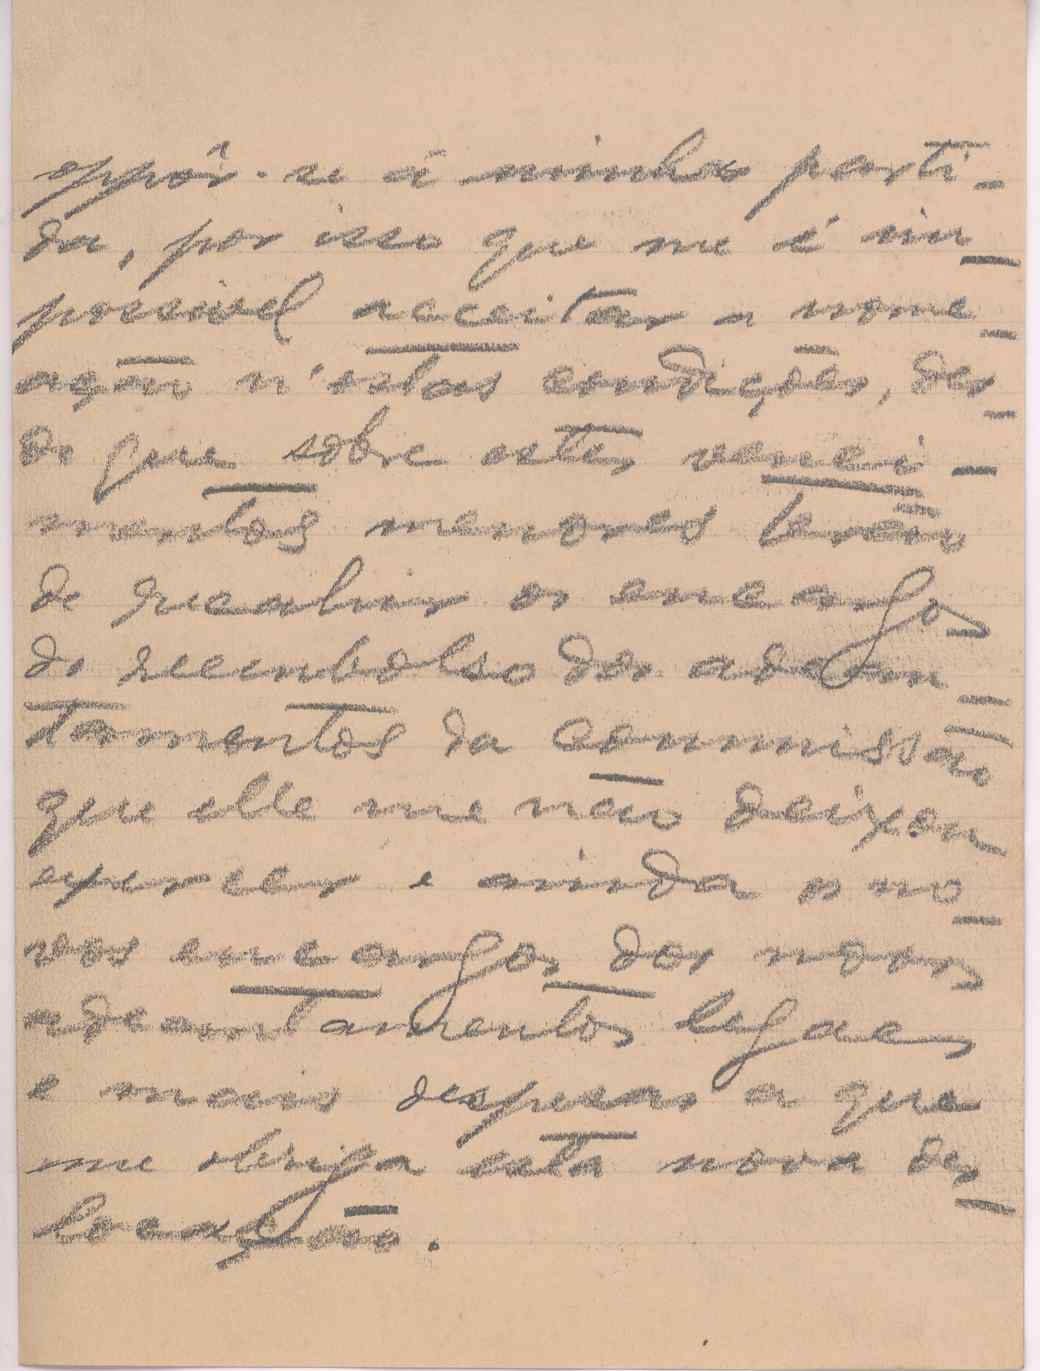 oppôr-se á minha parti-
da, por isso que me é im-
possivel acceitar a nome-
ação n'estas condições, des-
de que sobre estes venci-
mentos menores terão
de recahir os encargos
do reembolso dos adean-
tamentos da commissão
que elle me não deixou
exercer e ainda os no-
vos encargos dos novos
adeantamentos legaes
e mais despesas a que
me obriga esta nova des-
locação.